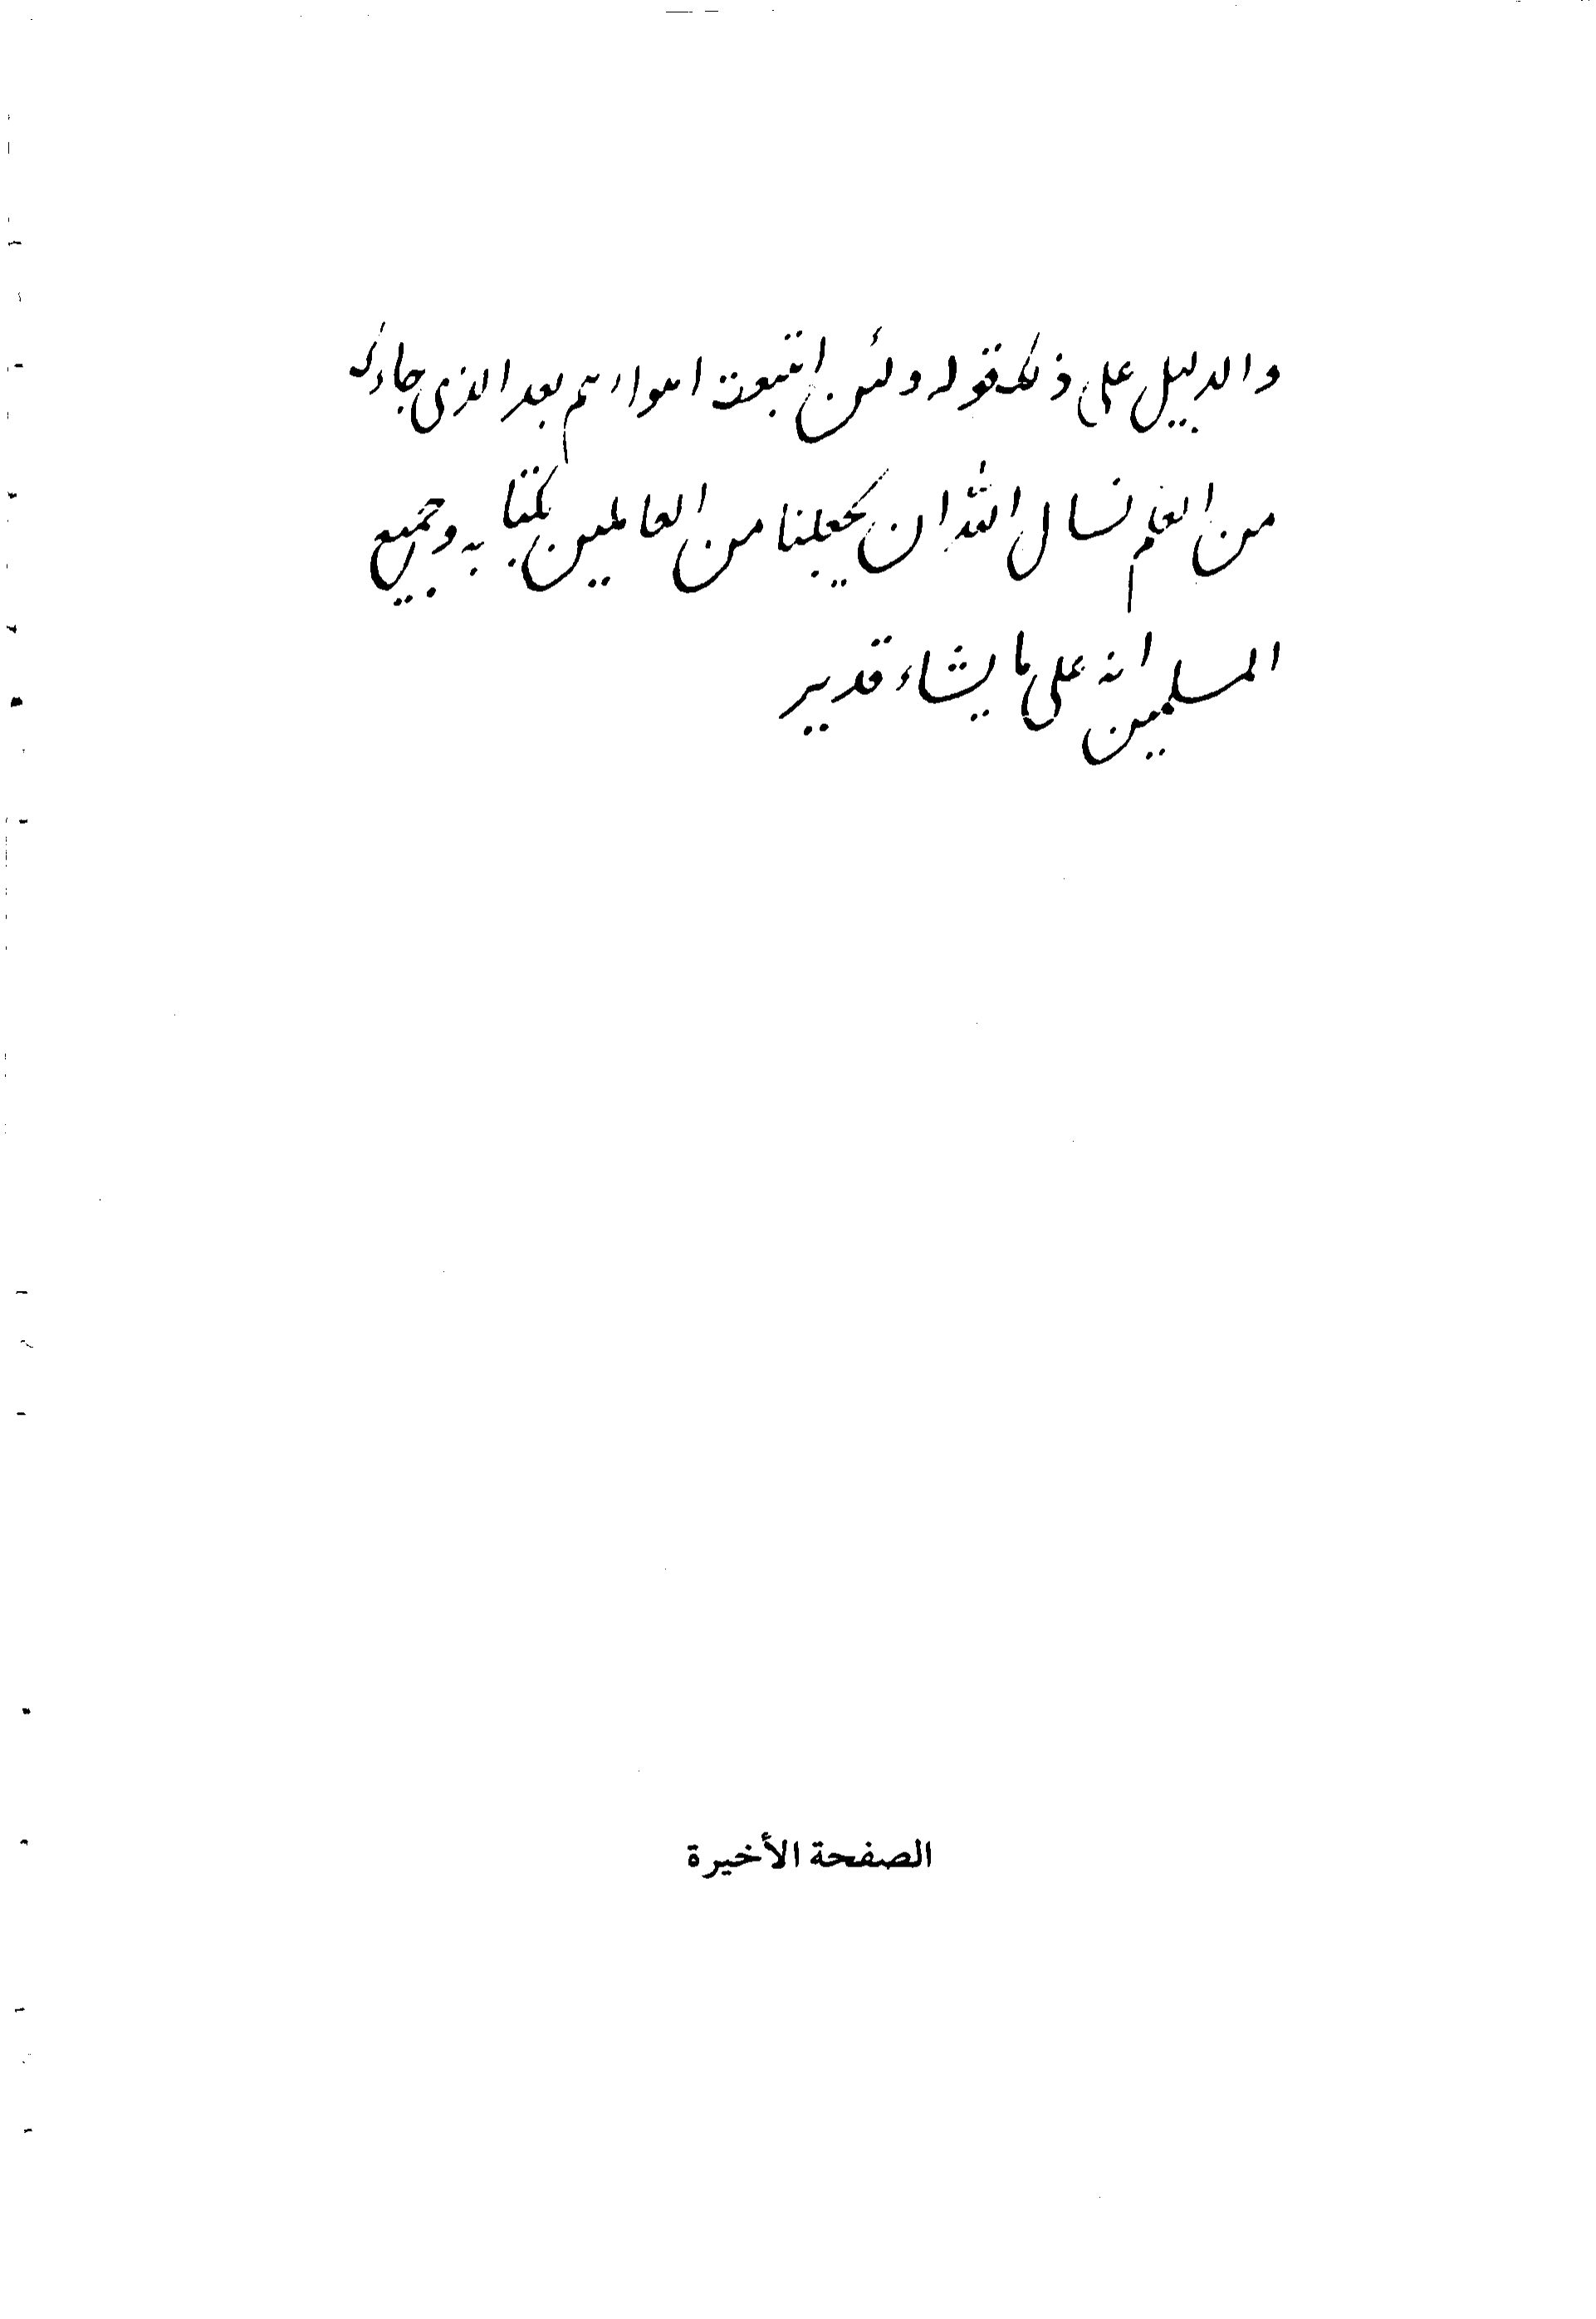 والدليل على ذلك قوله ولئن اتبعت اهواءهم بعد الذى جاءك
من العلم نسال الله ان يجعلنا من العالمين بكتابه وجميع
المسلمين انه على ما يشاء قدير
الصفحة الأخيرة